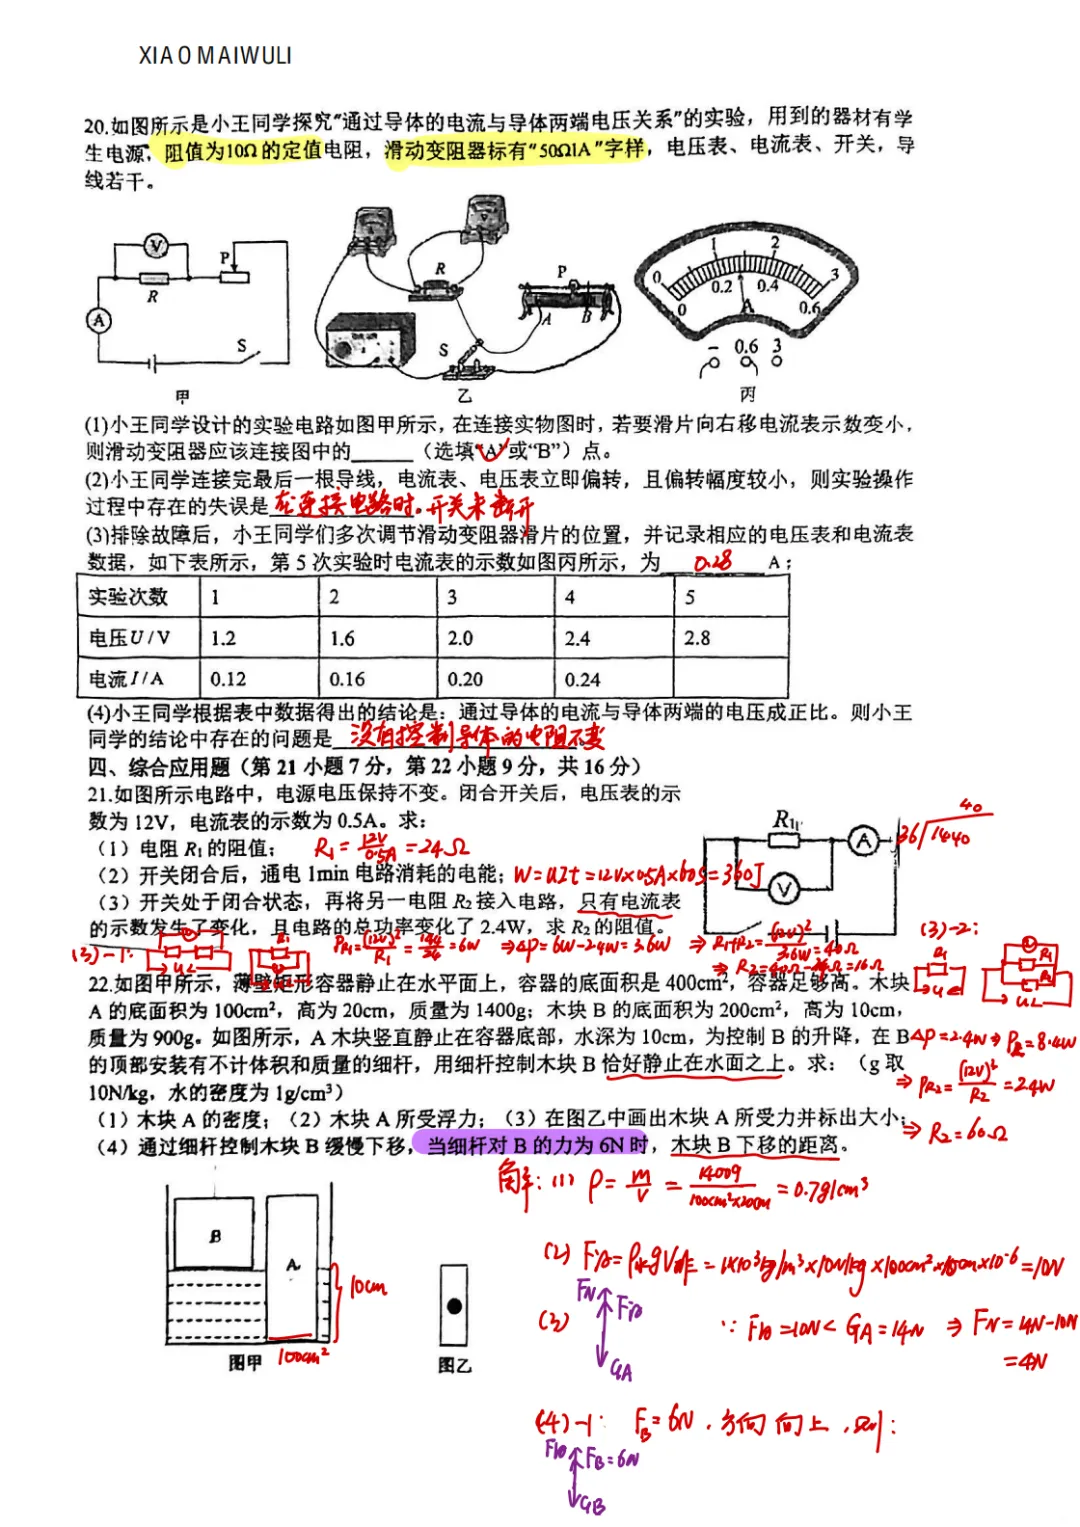 XIAO MAIWULI
20.如图所示是小王同学探究"通过导体的电流与导体两端电压关系"的实验，用到的器材有学
生电源，阻值为10Ω的定值电阻，滑动变阻器标有"50Ω1A"字样，电压表、电流表、开关，导
线若干。
V
P
R
A
S
甲
R
P
A
B
S
乙
0 1 2 3
0 0.2 0.4 0.6
A
- 0.6 3
丙
(1)小王同学设计的实验电路如图甲所示，在连接实物图时，若要滑片向右移电流表示数变小，
则滑动变阻器应该连接图中的______（选填"A"或"B"）点。
(2)小王同学连接完最后一根导线，电流表、电压表立即偏转，且偏转幅度较小，则实验操作
过程中存在的失误是 在连接电路时。开关未断开
(3)排除故障后，小王同学们多次调节滑动变阻器滑片的位置，并记录相应的电压表和电流表
数据，如下表所示，第 5 次实验时电流表的示数如图丙所示，为 0.28 A；
实验次数 1 2 3 4 5
电压U/V 1.2 1.6 2.0 2.4 2.8
电流I/A 0.12 0.16 0.20 0.24
(4)小王同学根据表中数据得出的结论是：通过导体的电流与导体两端的电压成正比。则小王
同学的结论中存在的问题是 没有控制导体的电阻不变
四、综合应用题（第 21 小题 7 分，第 22 小题 9 分，共 16 分）
21.如图所示电路中，电源电压保持不变。闭合开关后，电压表的示
数为 12V，电流表的示数为 0.5A。求：
（1）电阻 R₁的阻值； R₁=12V/0.5A=24Ω
（2）开关闭合后，通电 1min 电路消耗的电能；W=UIt=12V×0.5A×60S=360J
（3）开关处于闭合状态，再将另一电阻 R₂接入电路，只有电流表
的示数发生了变化，且电路的总功率变化了 2.4W，求 R₂的阻值。
R₁
A
V
40
36/1440
(3)-1:
UL
PR₁=(12V)²/R₁=144/24=6W ⇒ΔP=6W-2.4W=3.6W ⇒R₁+R₂=(12V)²/3.6W=40Ω
⇒R₂=40Ω-24Ω=16Ω
(3)-2:
R₁
UL
22.如图甲所示，薄壁矩形容器静止在水平面上，容器的底面积是 400cm²，容器足够高。木块
A 的底面积为 100cm²，高为 20cm，质量为 1400g；木块 B 的底面积为 200cm²，高为 10cm，
质量为 900g。如图所示，A 木块竖直静止在容器底部，水深为 10cm，为控制 B 的升降，在 B
的顶部安装有不计体积和质量的细杆，用细杆控制木块 B 恰好静止在水面之上。求：（g 取
10N/kg，水的密度为 1g/cm³）
（1）木块 A 的密度；（2）木块 A 所受浮力；（3）在图乙中画出木块 A 所受力并标出大小；
（4）通过细杆控制木块 B 缓慢下移，当细杆对 B 的力为 6N 时，木块 B 下移的距离。
ΔP=2.4W⇒P总=8.4W
⇒PR₂=(12V)²/R₂=2.4W
⇒R₂=60Ω
B
A
10cm
100cm²
图甲
图乙
解：(1) ρ=m/V=1400g/100cm²×20cm=0.7g/cm³
(2) F浮=ρ水gV排=1×10³kg/m³×10N/kg×100cm²×10cm×10⁻⁶=10N
(3)
FN
F浮
GA
∵F浮=10N<GA=14N ⇒FN=14N-10N
=4N
(4)-1: FB=6N，方向向上，则：
F浮 FB=6N
GB